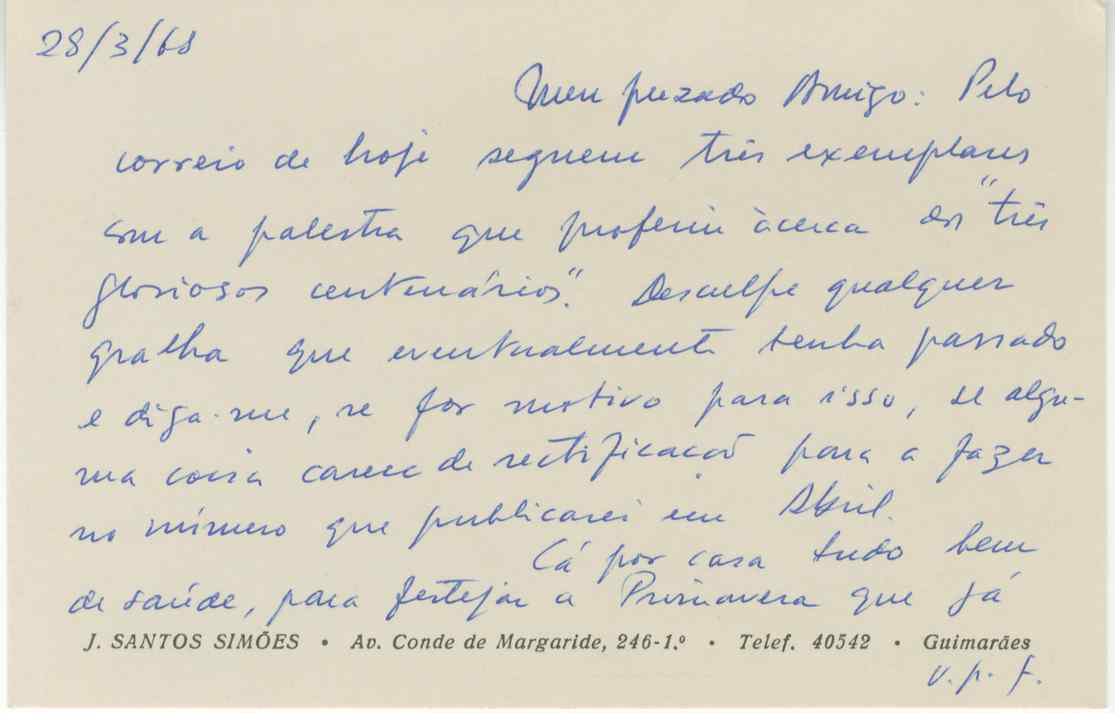 28/3/68
Meu prezado Amigo: Pelo
correio de hoje seguem três exemplares
com a palestra que proferi àcerca dos "três
gloriosos centenários". Desculpe qualquer
gralha que eventualmente tenha passado
e diga-me, se for motivo para isso, se algu-
ma coisa carece de rectificação para a fazer
no número que publicarei em Abril.
Cá por casa tudo bem
de saúde, para festejar a Primavera que já
J. SANTOS SIMÕES • Av. Conde de Margaride, 246-1.º • Telef. 40542 • Guimarães
v. p. f.